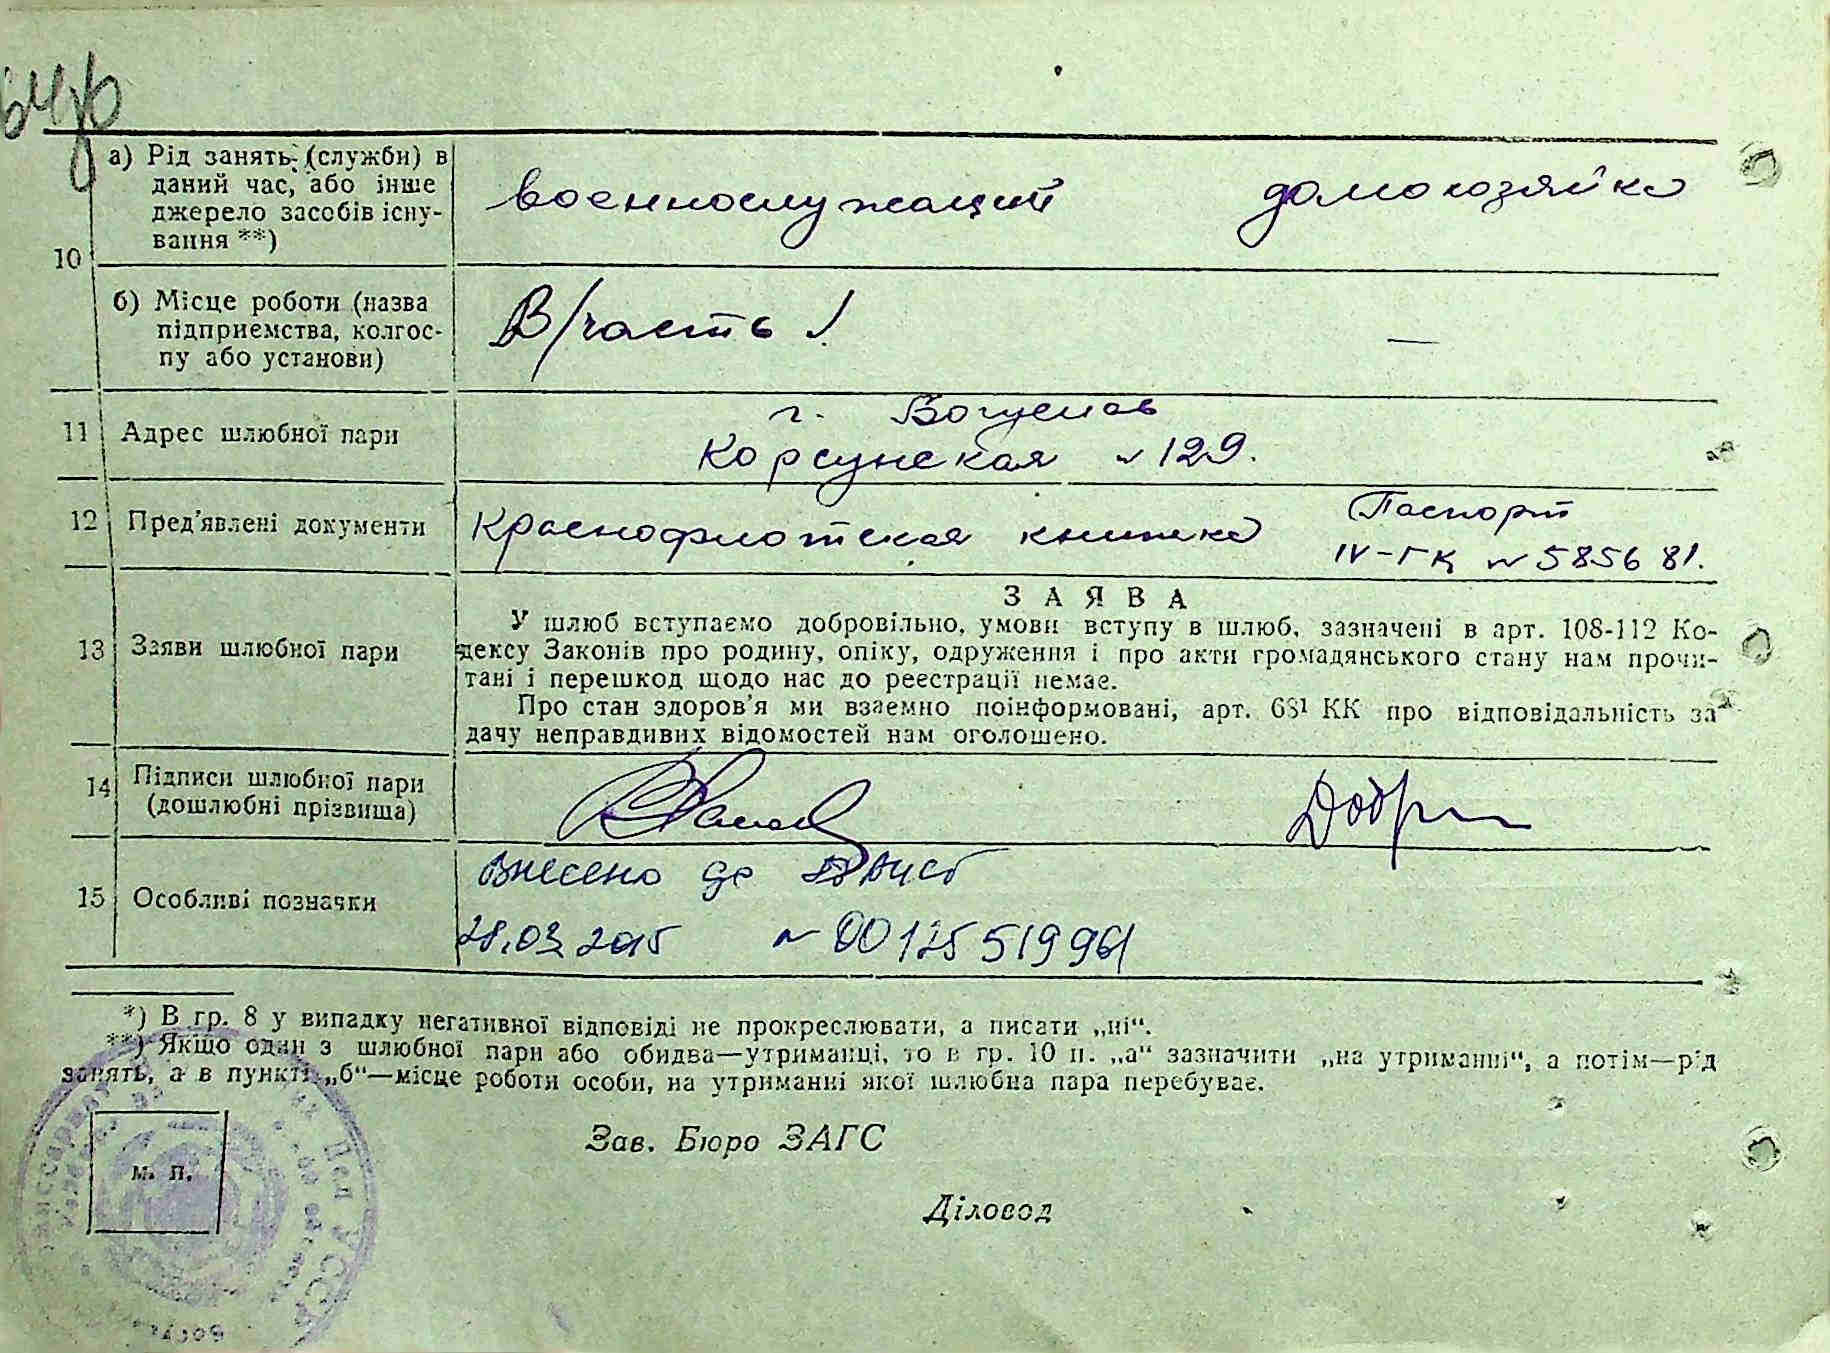 а) Рід занять (служби) в
даний час, або інше
джерело засобів існу-
вання **)
военнослужащий домохозяйка
10
б) Місце роботи (назва
підприємства, колгос-
пу або установи)
В/часть —
11 Адрес шлюбної пари
г. Богуслав
Корсунская № 129.
12 Пред'явлені документи
Краснофлотская книжка
Паспорт
IV-ГК № 585681.
13 Заяви шлюбної пари
ЗАЯВА
У шлюб вступаємо добровільно, умови вступу в шлюб, зазначені в арт. 108-112 Ко-
дексу Законів про родину, опіку, одруження і про акти громадянського стану нам прочи-
тані і перешкод щодо нас до реєстрації немає.
Про стан здоров'я ми взаємно поінформовані, арт. 68¹ КК про відповідальність за
дачу неправдивих відомостей нам оголошено.
14 Підписи шлюбної пари
(дошлюбні прізвища)
15 Особливі позначки
Внесено до
28.03.2015 № 00125519961
*) В гр. 8 у випадку негативної відповіді не прокреслювати, а писати „ні“.
**) Якщо один з шлюбної пари або обидва—утриманці, то в гр. 10 п. „а“ зазначити „на утриманні“, а потім—рід
занять, а в пункті „б“—місце роботи особи, на утриманні якої шлюбна пара перебуває.
М. П.
Зав. Бюро ЗАГС
Діловод
УССР